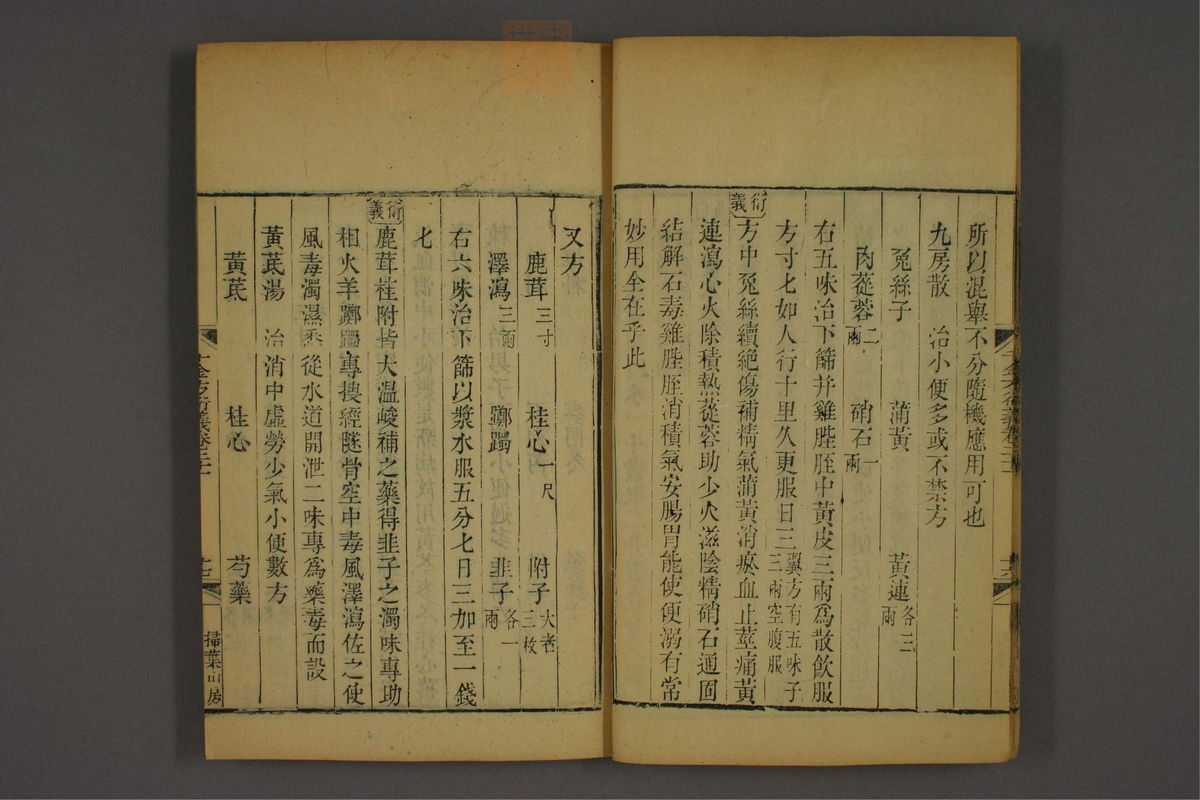 所以混與不分隨機應用可也
九房散　治小便多或不禁方
兔絲子　蒲黃　黃連各三兩
肉蓯蓉二兩　硝石一兩
右五味治下篩并雞膍胵中黃皮三兩爲散飲服
方寸匕如人行十里久更服日三翼方有五味子三兩空腹服
衍義
方中兔絲續絕傷補精氣蒲黃消瘀血止莖痛黃
連瀉心火除積熱蓯蓉助少火滋陰精硝石通固
結解石毒雞膍胵消積氣安腸胃能使便溺有常
妙用全在乎此
千金方衍義卷二十一
十六
又方
鹿茸三寸　桂心一尺　附子大者三枚
澤瀉三兩　躑躅　韭子各一兩
右六味治下篩以漿水服五分匕日三加至一錢
匕
衍義
鹿茸桂附皆大溫峻補之藥得韭子之濁味專助
相火羊躑躅專搜經隧骨空中毒風澤瀉佐之使
風毒濁濕悉從水道開泄二味專爲藥毒而設
黃芪湯　治消中虛勞少氣小便數方
黃芪　桂心　芍藥
千金方衍義卷二十一
十七
掃葉山房